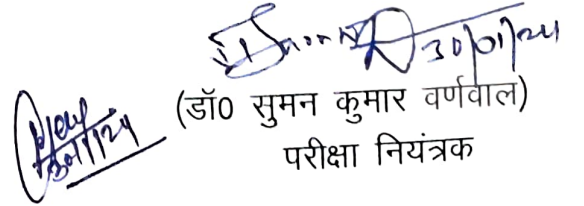 30/01/24
(डॉ0 सुमन कुमार वर्णवाल)
परीक्षा नियंत्रक